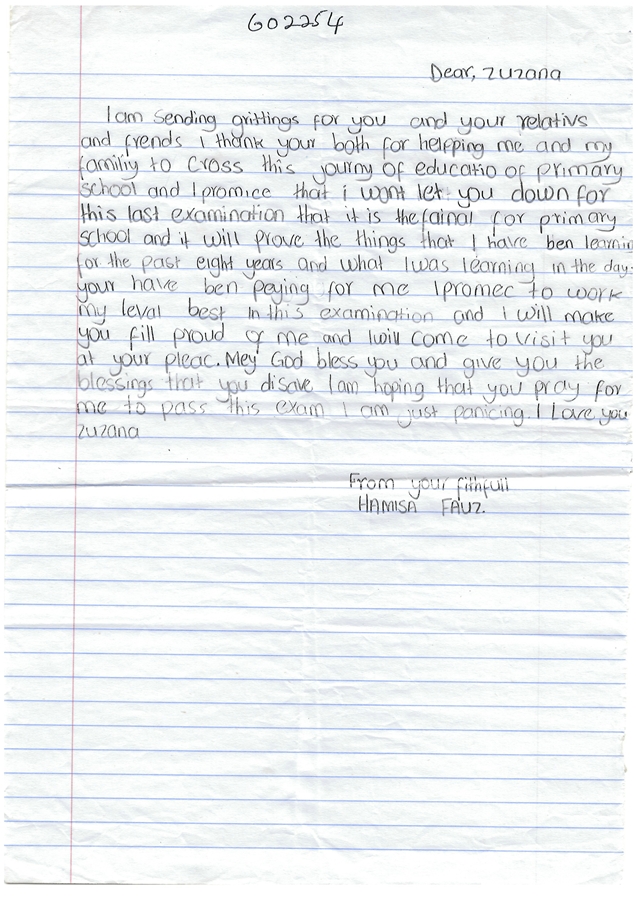 G02254
Dear, zuzana
I am sending grittings for you and your relativs
and frends I thank your both for helpping me and my
familiy to cross this journy of educatio of primary
school and I promice that i wont let you down for
this last examination that it is the fainal for primary
school and it will prove the things that I have ben learnin
for the past eight years and what I was learning in the day
your have ben peying for me I promec to work
my leval best in this examination and I will make
you fill proud of me and I will come to visit you
at your pleac. Mey God bless you and give you the
blessings that you disave I am hoping that you pray for
me to pass this exam I am just panicing I Love you
zuzana
From your fithfull
HAMISA FAUZ.